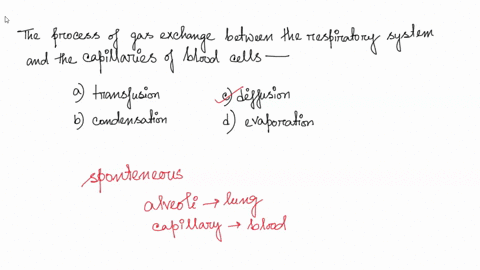 The process of gas exchange between the respiratory system
and the capillaries of blood cells —
a) transfusion c) diffusion
b) condensation d) evaporation
sponteneous
alveoli → lung
capillary → blood